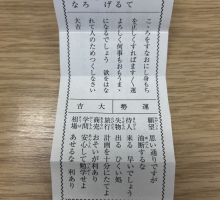 なろげるて
こゝろすなおにし身もち
を正しくすればますく運
よろしく何事もおもうまゝ
になるでしょう 欲をはな
れて人のためつくしなさい
大吉
運勢大吉
願望 思い通りですが
油断するな
待人 来る 早いでしょう
失物 出る ひくい処
旅行 計画を十分にたてよ
商売 おそいが利あり
学問 安心して勉学せよ
相場 あせるな 利あり